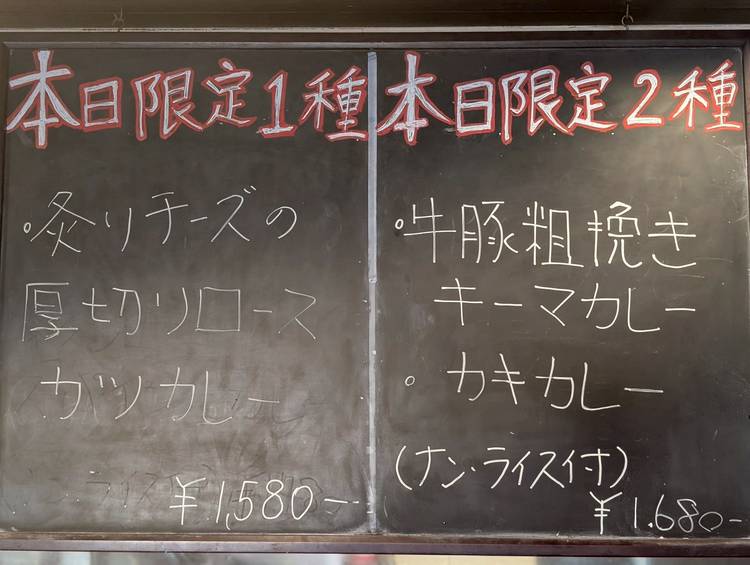 本日限定1種
・炙りチーズの
厚切りロース
カツカレー
¥1,580-
本日限定2種
・牛豚粗挽き
キーマカレー
・カキカレー
(ナン・ライス付)
¥1.680-